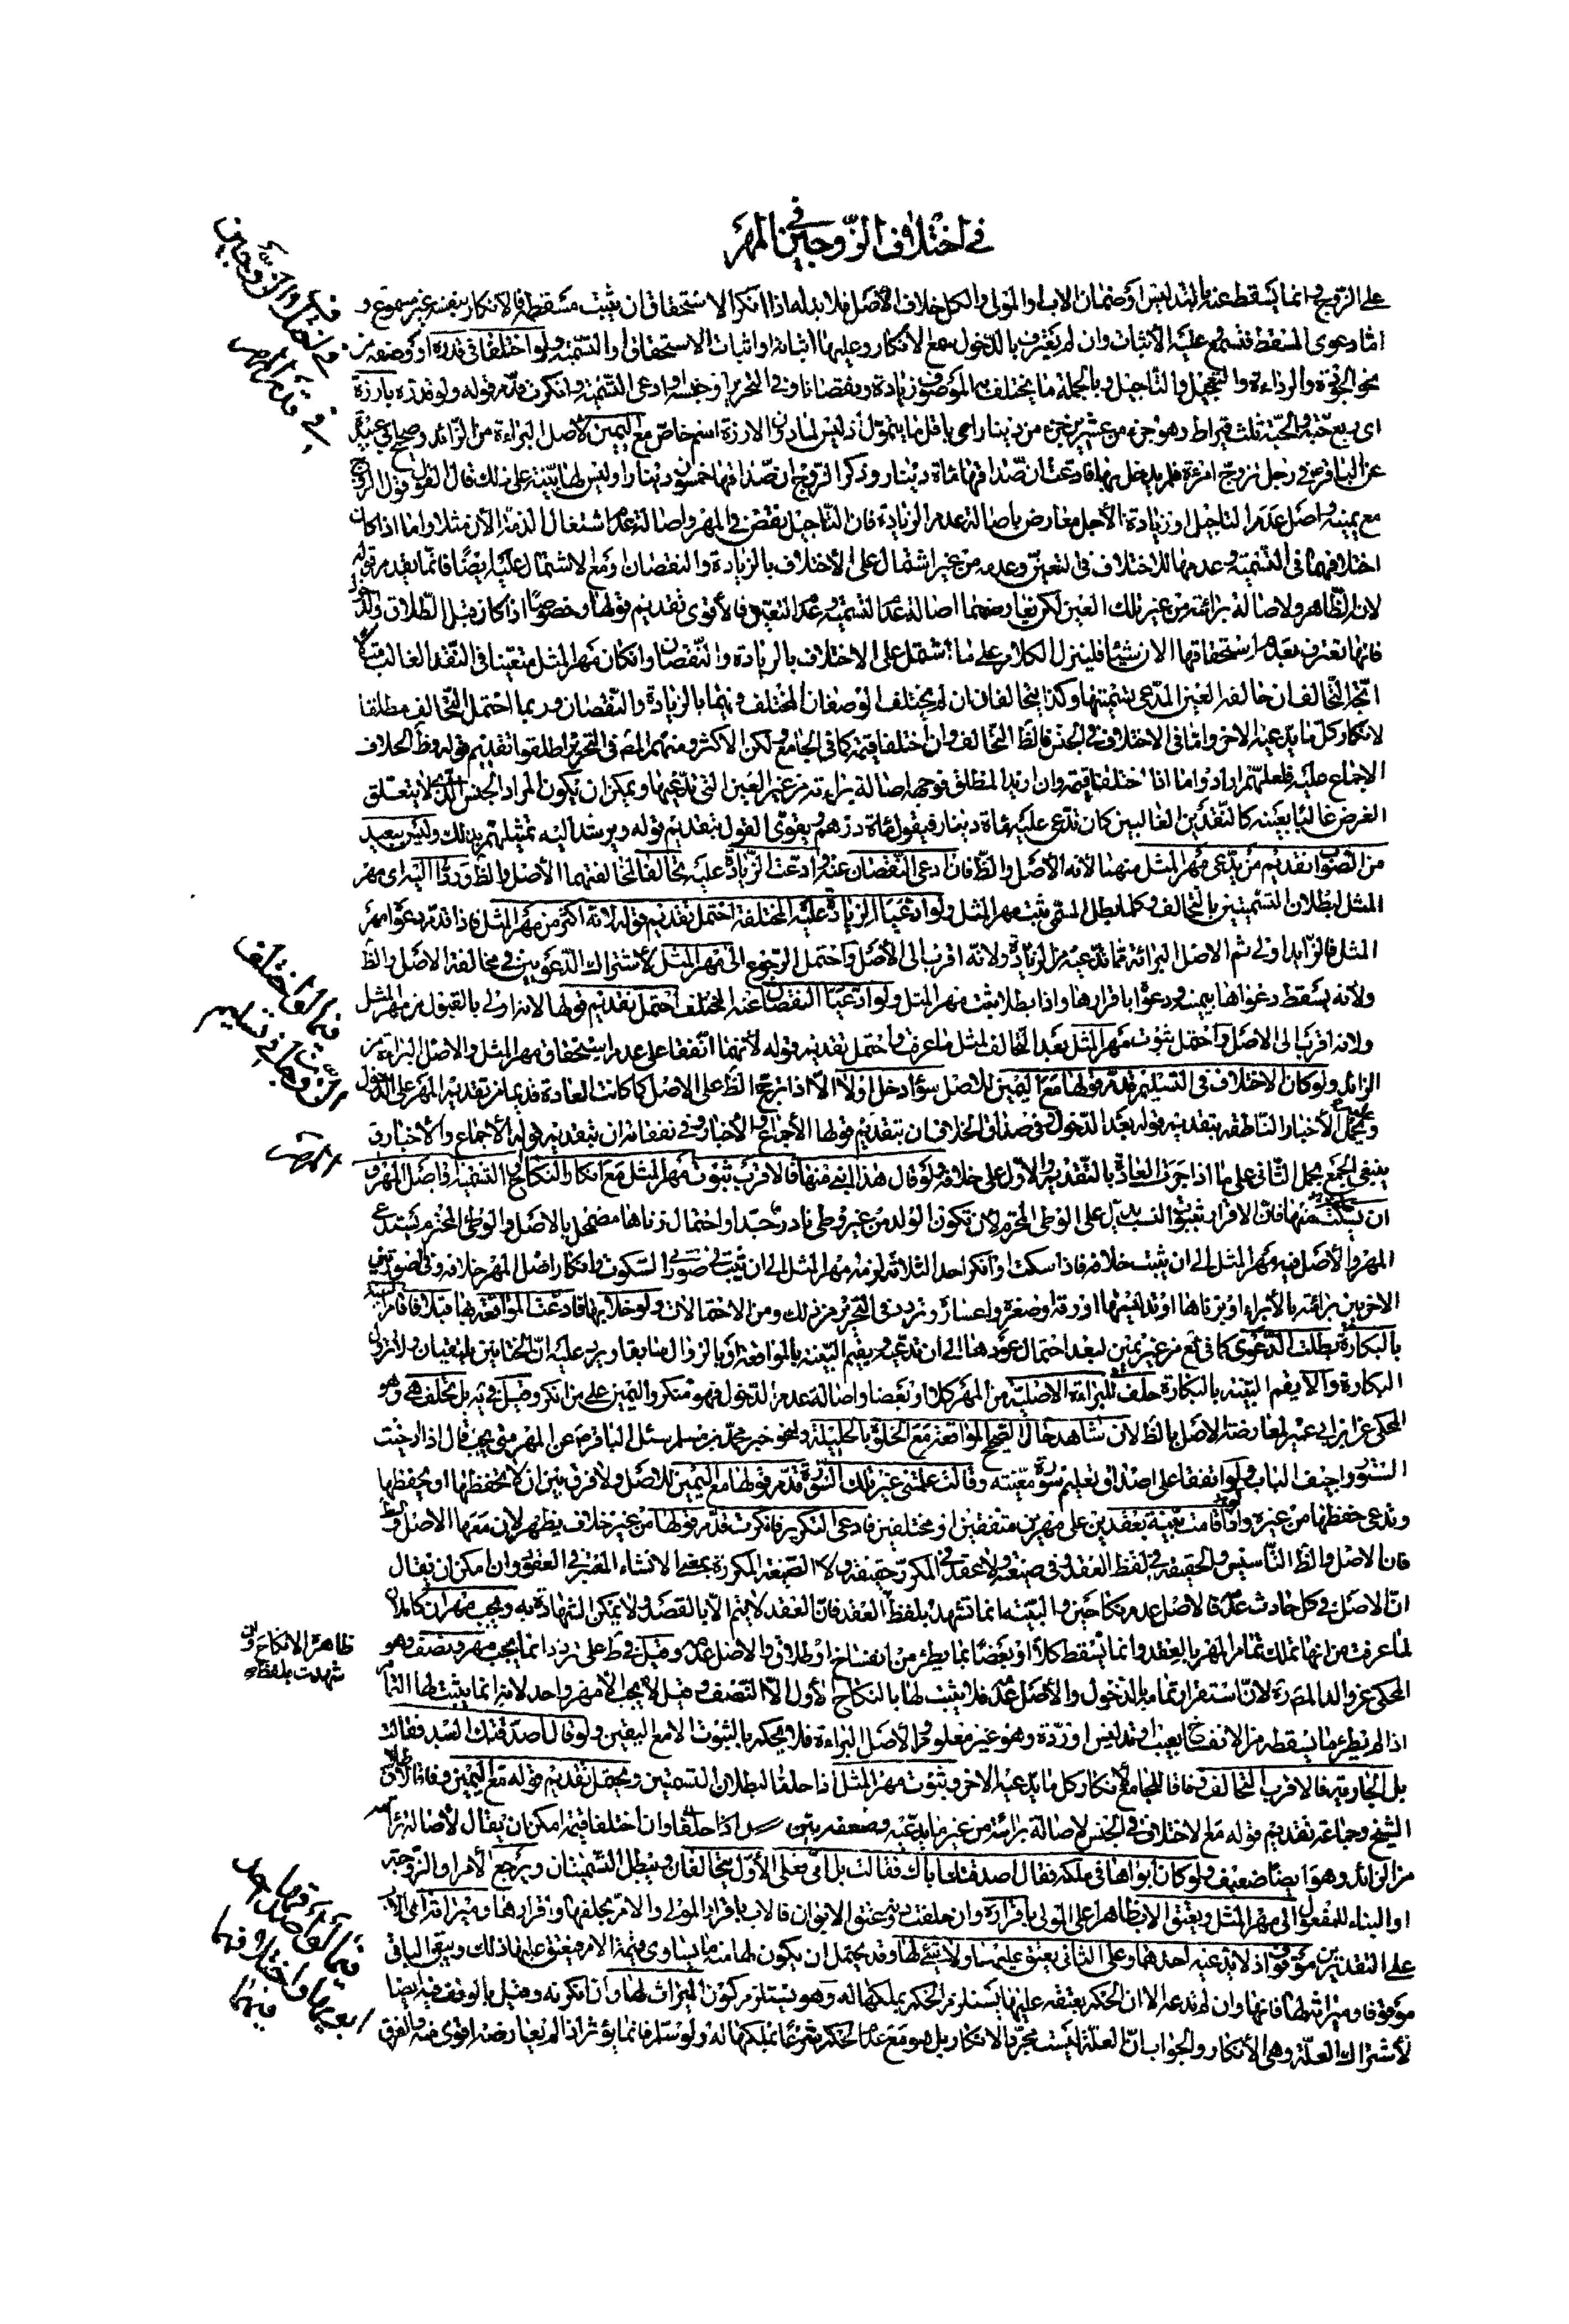 في اختلاف الزوجين في المهر
على الزوج وانما يسقط عنه بالتدليس او ضمان الاب او المولى والكل خلاف الاصل فلا بد له اذا انكر الاستحقاق ان يثبت مسقطه فالانكار بنفسه غير مسموع و
اما دعوى المسقط فتسمع عليه الاثبات وان لم يعترف بالدخول سمع الانكار وعليها اثباته او اثبات الاستحقاق او التسمية ولو اختلفا في قدره او وصفه من
نحو الجودة والرداءة والتعجيل والتأجيل وبالجملة ما يختلف به الموصوف زيادة ونقصانا وفي التحرير او جنسه او ادعى التسمية وانكرت قدم قوله ولو قدره بارزة
اي ربع حبة والحبة ثلث قيراط وهو جزء من عشرين جزء من دينار اي باقل ما يتمول اذ ليس لما دون الارزة اسم خاص مع اليمين لاصل البراءة من الزائد وصحيح ابي عبيدة
عن الباقر في رجل تزوج امرءة فلم يدخل بها فادعت ان صداقها مائة دينار وذكر الزوج ان صداقها خمسون دينارا وليس لها بينة على ذلك فقال القول قول الزوج
مع يمينه واصل عدم التاجيل او زيادة الاجل معارض باصالة عدم الزيادة فان التاجيل نقص في المهر واصالة عدم اشتغال الذمة الان مثلا واما اذا كان
اختلافهما في التسمية وعدمها للاختلاف في التعين وعدمه من غير اشتمال على الاختلاف بالزيادة والنقصان ومع الاشتمال عليه ايضا فانما يقدم قوله
لانه الظاهر ولاصالة برائته من غير تلك العين لكن تعارضهما اصالة عدم التسمية وعدم التعين فالاقوى تقديم قولها وخصوصا اذا كان قبل الطلاق والدخول
فانها تعترف بعدم استحقاقها الان شيئا فلينزل الكلام على ما اشتمل على الاختلاف بالزيادة والنقصان وان كان مهر المثل متعينا في النقد الغالب
اتجه التحالف ان خالفه العين المدعى تسميتها وكذا يتحالفان ان لم يختلف الوصفان المختلف فيهما بالزيادة والنقصان وربما احتمل التحالف مطلقا
لانكار كل ما يدعيه الاخر واما في الاختلاف في الجنس فالظ التحالف وان اختلفا قيمة كما في الجامع ولكن الاكثر ومنهم المص في التحرير اطلقوا تقديم قوله وظ الخلاف
الاجماع عليه فلعلهم ارادوا ما اذا اختلفا قيمة وان اريد المطلق فوجهه اصالة برائته من غير العين التي تدعيها ويمكن ان يكون المراد الجنس الذي لا يتعلق
الغرض غالبا بعينه كالنقدين الغالبين كان تدعي عليه مائة دينار فيقول مائة درهم ويقوى القول بتقديم قوله ويرشد اليه تمثيلهم بذلك وليس ببعيد
من الصواب تقديم من يدعي مهر المثل منهما لانه الاصل والظ فان ادعى النقصان عنه وادعت الزيادة عليه تحالفا لمخالفتهما الاصل والظ وردا اليه اي مهر
المثل لبطلان التسميتين بالتحالف وكلما بطل المسمى يثبت مهر المثل ولو ادعيا الزيادة عليه المختلفة احتمل تقديم قوله لانه اكثر من مهر المثل فاذا قدم دعوى مهر
المثل فالزايد اولى ثم الاصل البرائة مما تدعيه من الزيادة ولانه اقرب الى الاصل واحتمل الرجوع الى مهر المثل لاشتراك الدعويين في مخالفة الاصل والظ
ولانه يسقط دعواها بيمينه ودعواه باقرارها واذا بطلا يثبت مهر المثل ولو ادعيا النقصان عنه المختلف احتمل تقديم قولها لانه اولى بالقبول من مهر المثل
ولانه اقرب الى الاصل واحتمل ثبوت مهر المثل بعد التحالف لمثل ما عرفت واحتمل تقديم قوله لانهما اتفقا على عدم استحقاق مهر المثل والاصل البراءة من
الزائد ولو كان الاختلاف في التسليم قدم قولها مع اليمين للاصل سواء دخل اولا الا اذا ترجح الظ على الاصل كما كانت العادة قديما من تقديم المهر على الدخول
ويحمل الاخبار الناطقة بتقديم قوله بعد الدخول وفي صداق الخلاف ان بتقديم قولها الاجماع والاخبار وفي نفقاته ان بتقديم قوله الاجماع والاخبار ف
ينبغي الجمع بحمل الثاني على ما اذا جرت العادة بالتقديم والاول على خلافه ولو قال هذا ابني منها فالاقرب ثبوت مهر المثل مع انكار النكاح او التسمية او اصل المهر و
ان سكت عنها فان الاقرار بثبوت النسب يدل على الوطي المحترم لان تكون الولد من غير وطي نادر جدا واحتمال زناها مضمحل بالاصل والوطي المحترم يستدعي
المهر والاصل فيه مهر المثل الى ان يثبت خلافه فاذا سكت او انكر احد الثلاثة لزمه مهر المثل الى ان تثبت في صورتي السكوت وانكار اصل المهر خلافه وفي الصورتين
الاخريين برائته بالابراء او بزناها او تدليسها او رقه او صغره او اعساره وتردد في التحرير من ذلك ومن الاحتمالات ولو خلا بها فادعت المواقعة بها قبلا فاقام البينة
بالبكارة بطلت الدعوى كما في ئع من غير يمين لبعد احتمال عودها الى ان تدعيه ويقيم البينة بالمواقعة او بالزوال سابقا ويرد عليه ان الختانين يلتقيان ولا تزول
البكارة والا يقم البينة بالبكارة حلف للبراءة الاصلية من المهر كلا او بعضا واصالة عدم الدخول فهو منكر واليمين على من انكر وقيل في يه بل تحلف هي وهو
المحكي عن ابن ابي عمير لمعارضة الاصل بالظ لان شاهد حال الصحيح المواقعة مع الخلوة بالحليلة ولنحو خبر محمد بن مسلم سئل الباقر عن المهر متى يجب قال اذا ارخيت
الستور واجيف الباب ولو اتفقا على اصداق تعليم سورة معينة وقالت علمني غير تلك السورة قدم قولها مع اليمين للاصل ولا فرق بين ان لا تحفظها او تحفظها
وتدعي حفظها من غيره ولو اقامت بينة بعقدين على مهرين متفقين او مختلفين فادعى التكرير فانكرت قدم قولها من غير خلاف يظهر لان معها الاصل والظ
فان الاصل والظ التأسيس والحقيقة في لفظ العقد وفي صيغته ولا عقد في المكرر حقيقة ولا الصيغة المكررة بمعنى الانشاء المعتبر في العقود وان امكن ان يقال
ان الاصل في كل حادث عدمه فالاصل عدم نكاحين والبينة انما تشهد بلفظ العقد فان العقد لا يتم الا بالقصد ولا يمكن الشهادة به ويجب مهران كاملان
لما عرفت من انها تملك تمام المهر بالعقد وانما يسقط كلا او بعضا بما يطرء من انفساخ او طلاق والاصل عدمه وقيل في ط على تردد انما يجب مهر ونصف وهو
المحكي عن والد المصره لان استقرار تمامه بالدخول والاصل عدمه فلا يثبت لها بالنكاح الاول الا النصف وقيل لا يجب الا مهر واحد لانه انما يثبت لها التمام
اذا لم يطرء ما يسقطه من الانفساخ بعيب او تدليس او ردة وهو غير معلوم والاصل البراءة فلا يحكم بالثبوت الا مع اليقين ولو قال اصدقتك العبد فقالت
بل الجارية فالاقرب التحالف وفاقا للجامع لانكار كل ما يدعيه الاخر وثبوت مهر المثل اذا حلفا لبطلان التسميتين ويحتمل تقديم قوله مع اليمين وفاقا لاطلاق
الشيخ وجماعة تقديم قوله مع الاختلاف في الجنس لاصالة برائته من غير ما يدعيه وضعفه بين اذا حلفا وان اختلفا قيمة امكن ان يقال لاصالة برائته
من الزائد وهو ايضا ضعيف ولو كان ابواها في ملكه فقال اصدقتك اباك فقالت بل امي فعلى الاول يتحالفان ويبطل التسميتان ويرجع الامر او الزوجة
او البناء للمفعول الى مهر المثل ويعتق الاب ظاهرا على المولى باقراره وان حلفت دونه عتق الابوان فالاب باقرار المولى والام بحلفها واقرارها وميراث الاب
على التقديرين موقوف اذ لا يدعيه احدهما وعلى الثاني يعتق عليها ولا شيء لها وقد يحتمل ان يكون لها منه ما يساوي قيمة الام فيعتق عليها ذلك ويبقى الباقي
موقوفا وميراثه لها فانها وان لم تدعه الا ان الحكم بعتقه عليها يستلزم الحكم بملكها له وهو يستلزم كون الميراث لها وان انكرته وقيل بالوقف فيه ايضا
لاشتراك العلة وهي الانكار والجواب ان العلة ليست مجرد الانكار بل هو مع عدم الحكم شرعا بملكها له ولو سلم فانما يؤثر اذا لم يعارضه اقوى منه والفرق
فيما لو اختلف
الزوجان في تسليم
المهر
ظاهر الانكاح وان
شهدت بلفظه